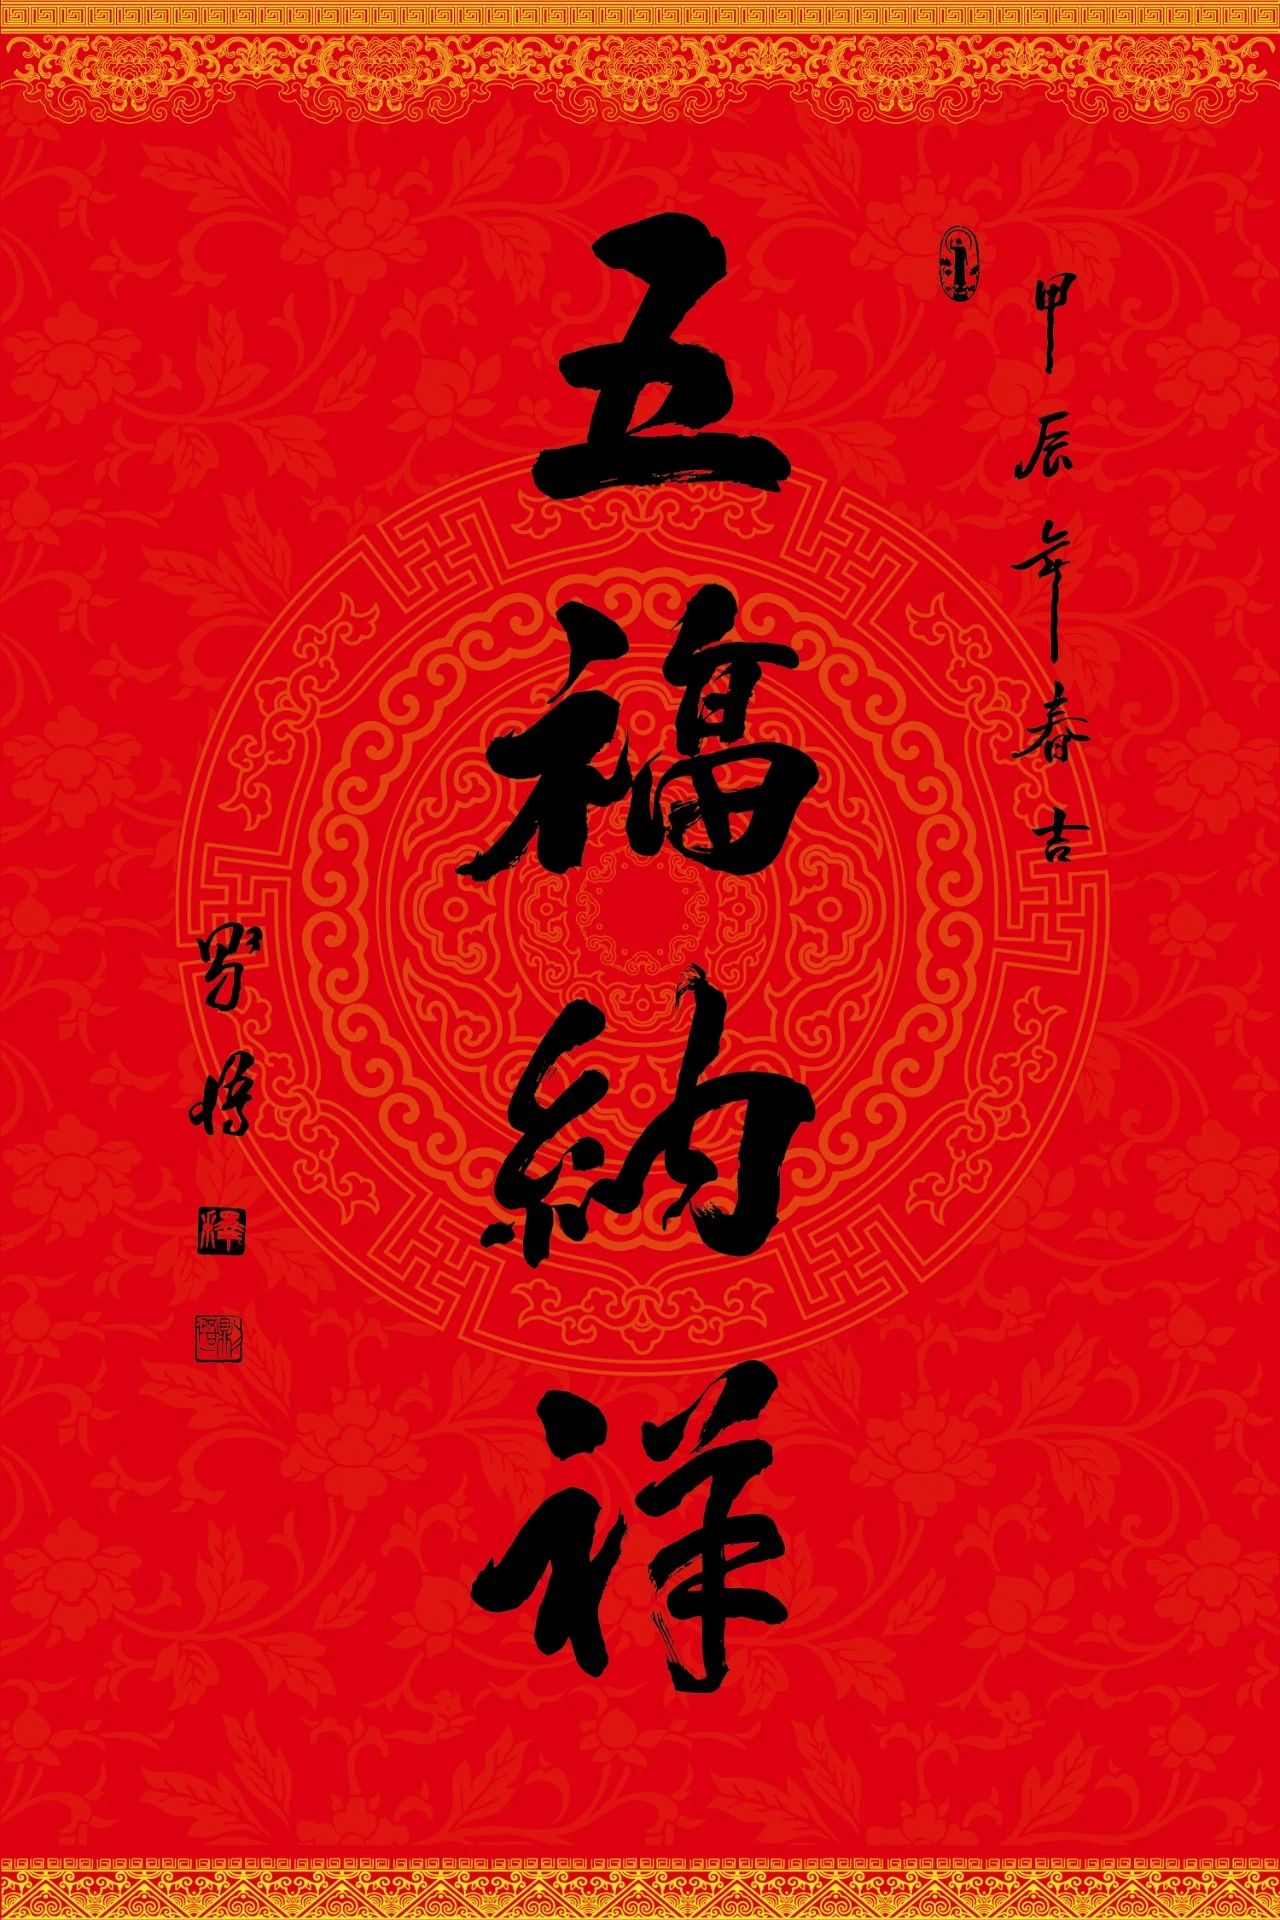 甲辰年春吉
五福納祥